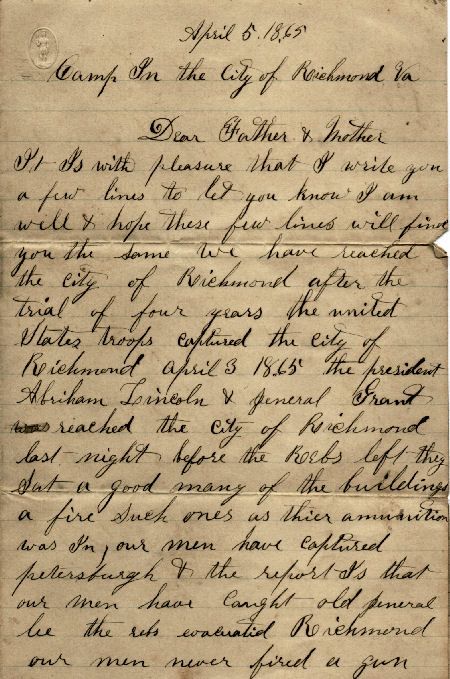 April 5. 1865
Camp In the City of Richmond Va
Dear Father & Mother
It Is with pleasure that I write you
a few lines to let you know I am
will & hope these few lines will find
you the same We have reached
the city of Richmond after the
trial of four years the united
States troops captured the city of
Richmond april 3 1865 the president
Abriham Lincoln & general Grant
was reached the city of Richmond
last night before the Rebs left they
Sat a good many of the buildings
a fire Such ones as thier amunition
was In, our men have captured
petersburgh & the report Is that
our men have Caught old general
lee the rebs evacuatid Richmond
our men never fired a gun